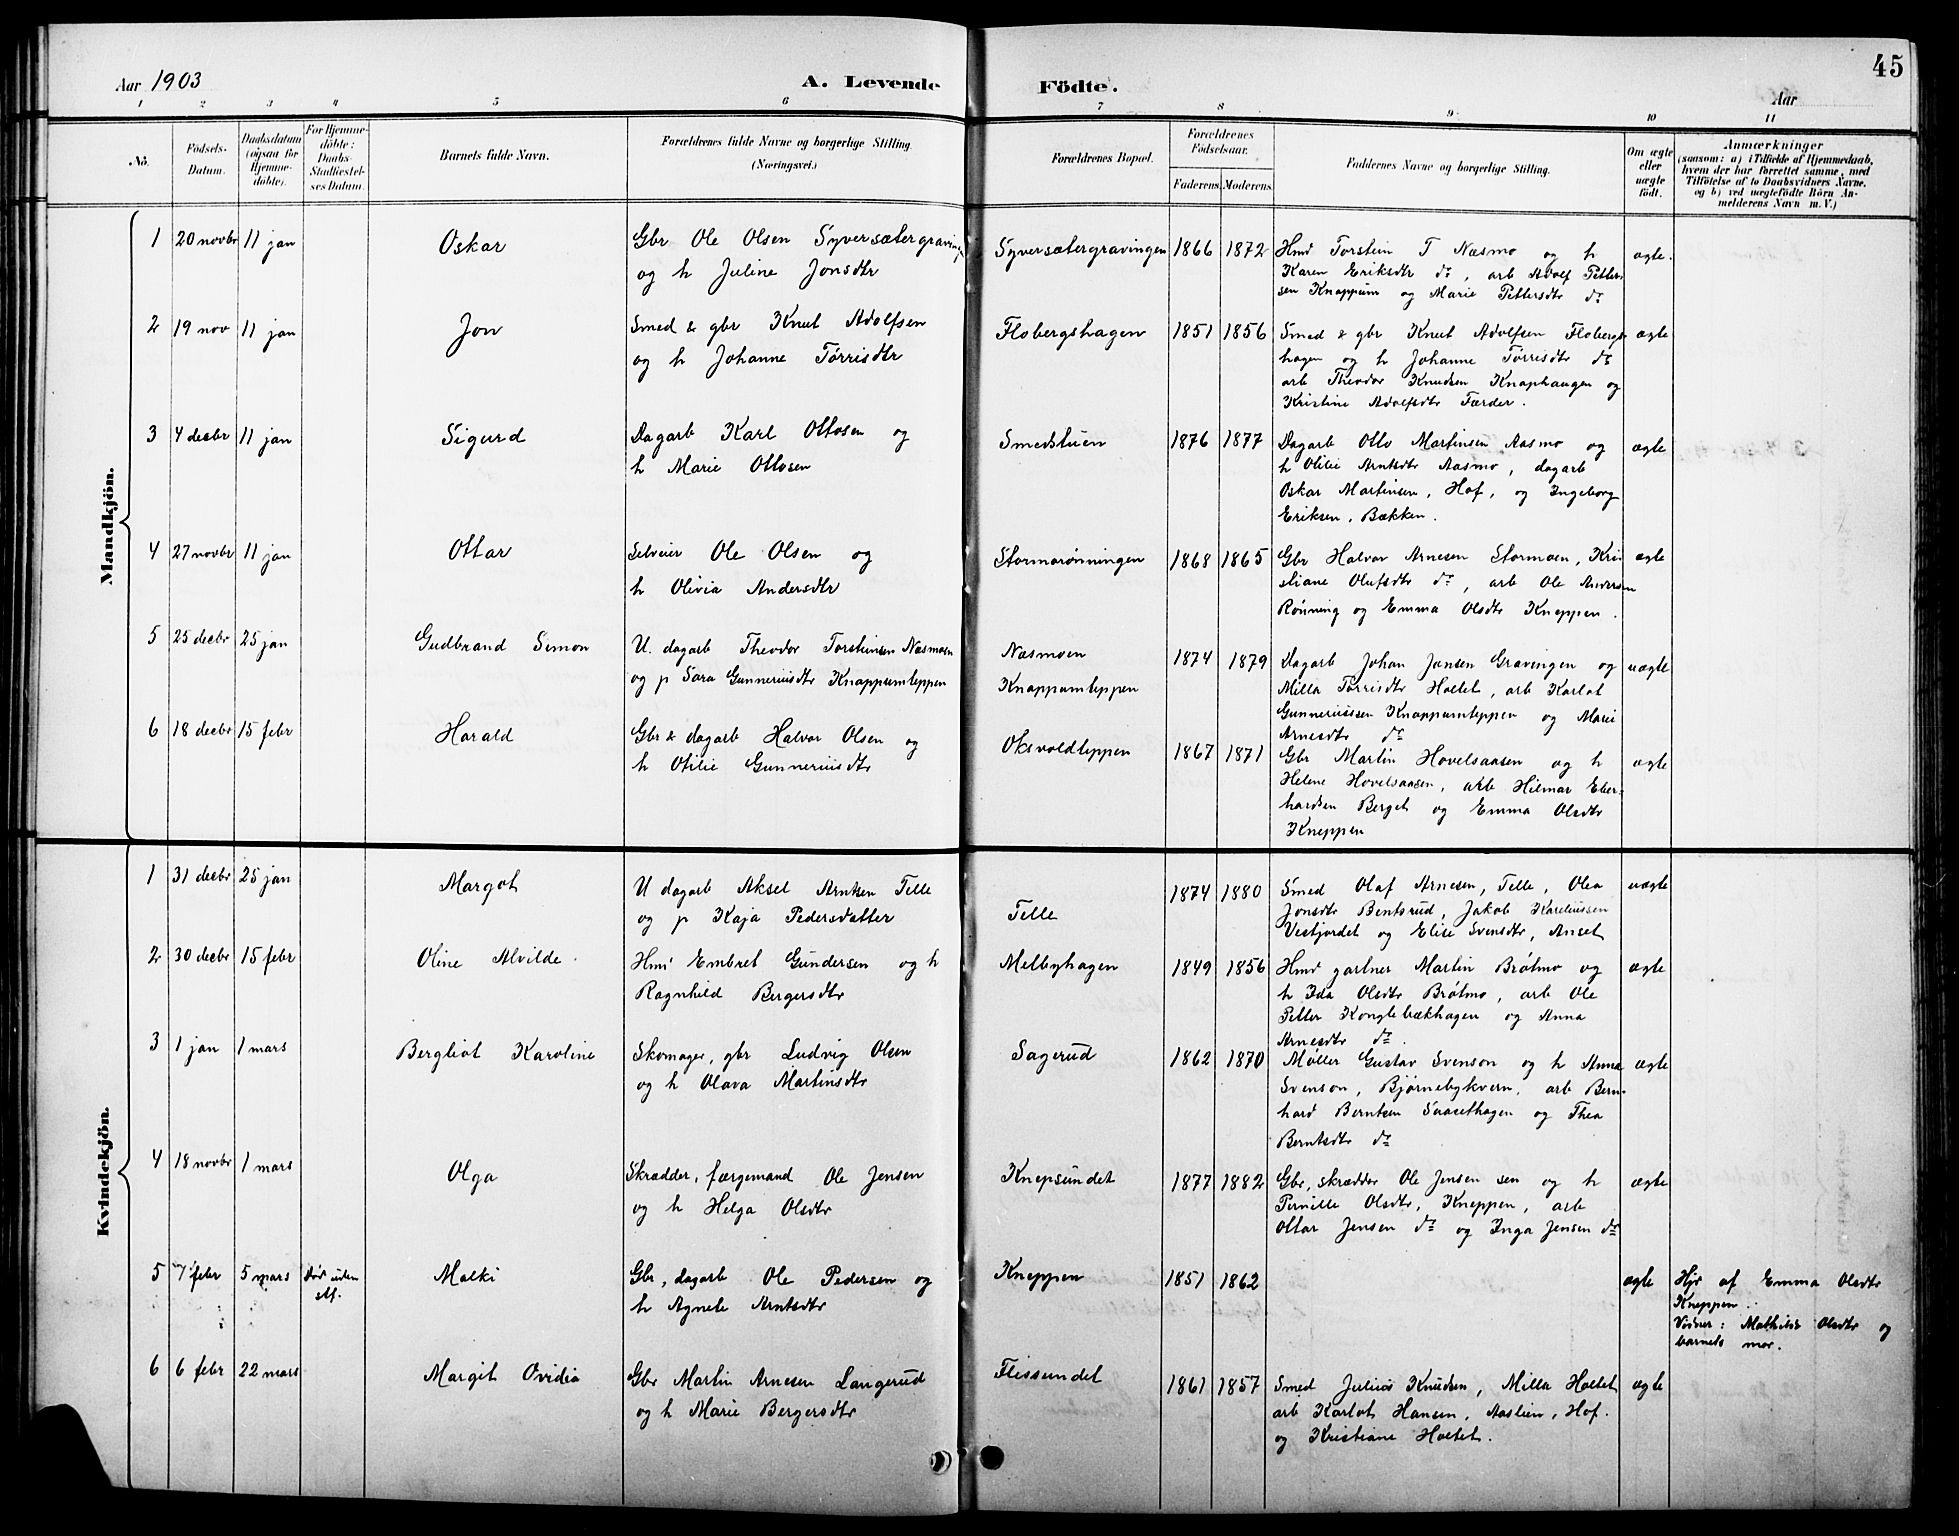 Aar 1903
A. Levende Födte.
45
Aar
1 2 3 4 5 6 7 8 9 10 11
No.
Födsels-Datum.
Daabsdatum (ogsaa for Hjemme-döbte).
For Hjemme-döbte: Daabs-Stadfæstel-ses Datum.
Barnets fulde Navn.
Forældrenes fulde Navne og borgerlige Stilling. (Næringsvei.)
Forældrenes Bopæl.
Forældrenes Födselsaar.
Faderens. Moderens.
Faddernes Navne og borgerlige Stilling.
Om ægte eller uægte födt.
Anmærkninger
(saasom: a) i Tilfælde af Hjemmedaab,
hvem der har forrettet samme, med
Tilföielse af to Daabsvidners Navne,
og b) ved uægtefödte Börn An-
melderens Navn m. V.)
Mandkjön.
1 20 novbr 11 jan Oskar Gbr Ole Olsen Syversætergravingn
og h Juline Jonsdtr
Syversætergravingen 1866 1872 Hmd Torstein T Næsmo og h ægte.
Karen Eriksdtr do, arb Adolf Petter-
sen Knappum og Marie Pettersdtr do
2 19 nov 11 jan Jon Smed & gbr Knut Adolfsen
og h Johanne Tørrisdtr
Flobergshagen 1851 1856 Smed & gbr Knut Adolfsen Flobergs- ægte
hagen og h Johanne Tørrisdtr do
arb Theodor Knudsen Knaphaugen og
Kristine Adolfsdtr Færder.
3 4 decbr 11 jan Sigurd Dagarb Karl Ottosen og
h Marie Ottosen
Smedstuen 1876 1877 Dagarb Otto Martinsen Aasmo og ægte
h Otilie Arntsdtr Aasmo, dagarb
Oskar Martinsen, Hof, og Ingeborg
Eriksen, Bækken.
4 27 novbr 11 jan Ottar Selveier Ole Olsen og
h Olivia Andersdtr
Stormorønningen 1868 1865 Gbr Halvor Arnesen Stormoen, Kri- ægte
stiane Olufsdtr do, arb Ole Andersen
Rønning og Emma Olsdtr Kneppen.
5 25 decbr 25 jan Gudbrand Simon U. dagarb Theodor Torstensen Næsmoen
og p Sara Gunneriusdtr Knappumteppen
Næsmoen
Knappumteppen
1874 1879 Dagarb Johan Jansen Gravingen og uægte
Milla Tørrisdtr Holtet, arb Karlot
Gunneriussen Knappumteppen og Marie
Arnesdtr do
6 18 decbr 15 febr Harald Gbr & dagarb Halvor Olsen og
h Otilie Gunneriusdtr
Oksvoldteppen 1867 1871 Gbr Martin Hovelsaasen og h ægte
Helene Hovelsaasen, arb Hilmar Eber-
hardsen Berget og Emma Olsdtr
Kneppen
Kvindekjön.
1 31 decbr 25 jan Margot U dagarb Aksel Arntsen Telle
og p Kaja Pedersdatter
Telle 1874 1880 Smed Olaf Arnesen, Telle, Olea uægte
Jonsdtr Bentsrud, Jakob Kareliussen
Vestjordet og Elise Svensdtr, Anset
2 30 decbr 15 febr Oline Alvilde. Hmd Embret Gundersen og h
Ragnhild Bergersdtr
Melbyhagen 1849 1856 Hmd gartner Martin Brøtmo og ægte
h Ida Olsdtr Brøtmo, arb Ole
Petter Konglebækhagen og Anna
Arnesdtr do.
3 1 jan 1 mars Bergliot Karoline Skomager, gbr Ludvig Olsen
og h Olava Martinsdtr
Sagerud 1862 1870 Møller Gustav Svenson og h Anna ægte
Svenson, Bjørnebykvern, arb Bern-
hard Berntsen Snasethagen og Thea
Berntsdtr do
4 18 novbr 1 mars Olga Skrædder, færgemand Ole Jensen
og h Helga Olsdtr
Knepsundet 1877 1882 Gbr, skrædder Ole Jensen sen og h ægte
Pernille Olsdtr, Kneppen, arb
Ottar Jensen do og Inga Jensen do
5 7 febr 5 mars Død uden st. Malki Gbr, dagarb Ole Pedersen og
h Agnete Arntsdtr
Kneppen 1851 1862 ægte Hjd af Emma Olsdtr
Kneppen.
Vidner: Mathilde Olsdtr og
barnets mor.
6 6 febr 22 mars Margit Ovidia Gbr Martin Arnesen Langerud
og h Marie Bergersdtr
Flissundet 1861 1857 Smed Julius Knudsen, Milla Holtet ægte
arb Karlot Hansen, Aaslien, Hof.
og Kristiane Holtet.